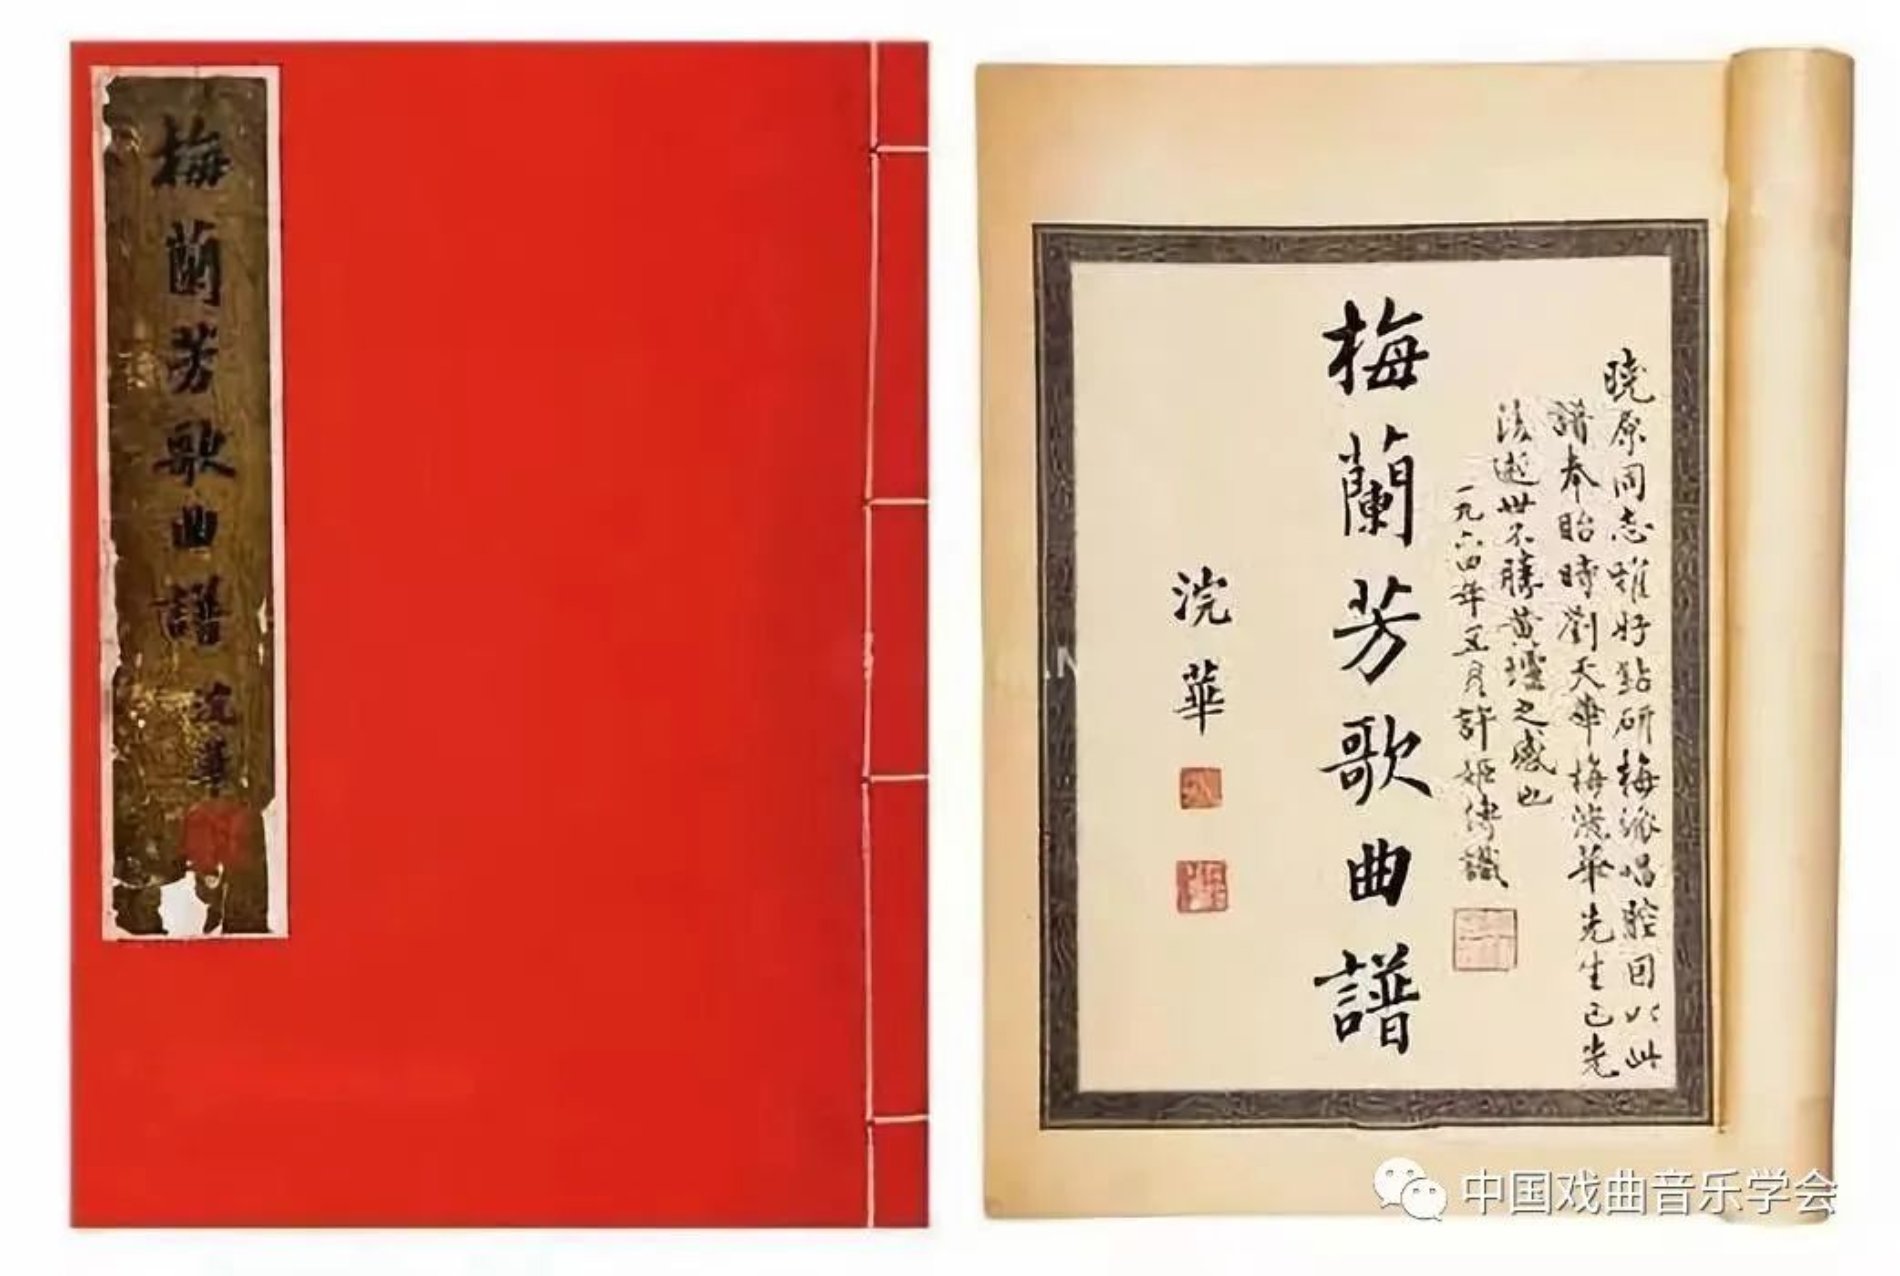 梅蘭芳歌曲譜
浣華
曉原同志雅好鈷研梅派唱腔因以此
譜奉貽時劉天華梅浣華先生已先
後逝世不勝黄壚之感也
一九六四年五月許姬傳識
梅蘭芳歌曲譜
浣華
中国戏曲音乐学会